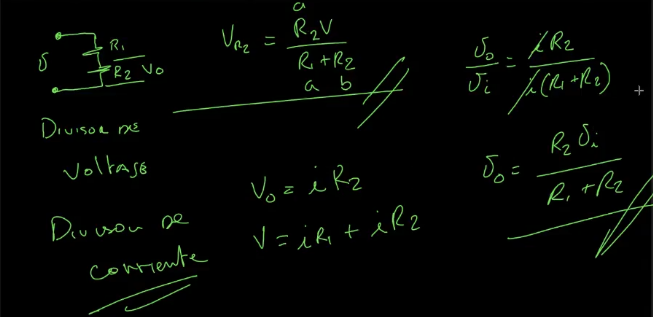 υ R₁
R₂ Vo
Divisor de
voltage
Divisor de
corriente
a
V_R₂ = R₂V / (R₁ + R₂)
a b
Vo = iR₂
V = iR₁ + iR₂
υo/υi = iR₂ / i(R₁ + R₂)
υo = R₂υi / (R₁ + R₂)